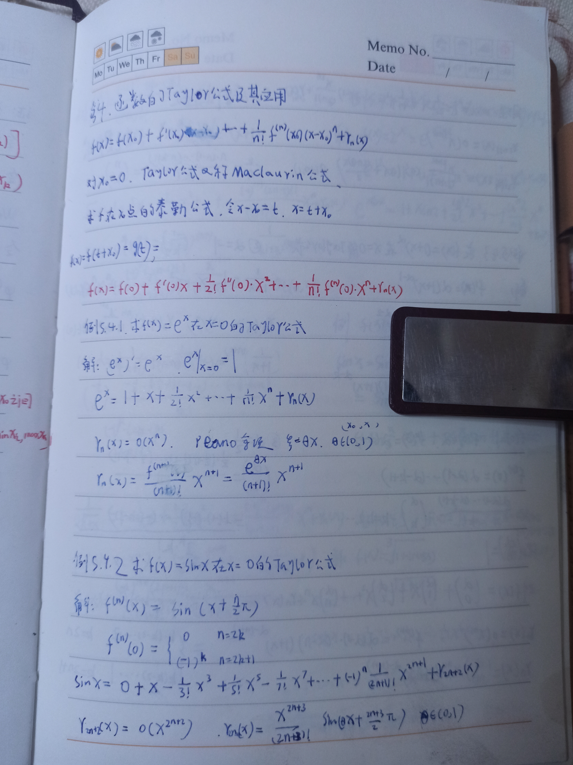 Memo No.
Mo Tu We Th Fr Sa Su
Date / /
§4. 函数的Taylor公式及其应用
f(x)=f(x₀)+f'(x₀)(x-x₀)+…+\frac{1}{n!}f^{(n)}(x₀)(x-x₀)^n+r_n(x)
对x₀=0. Taylor公式又称Maclaurin公式.
求f在x₀点的泰勒公式. 令x-x₀=t. x=t+x₀
f(x)=f(t+x₀)=g(t);
f(x)=f(0)+f'(0)x+\frac{1}{2!}f''(0)·x²+…+\frac{1}{n!}f^{(n)}(0)·x^n+r_n(x)
例5.4.1. 求f(x)=e^x在x=0的Taylor公式
解: (e^x)'=e^x. e^x|_{x=0}=1
e^x=1+x+\frac{1}{2!}x²+…+\frac{1}{n!}x^n+r_n(x)
r_n(x)=o(x^n). peano余项 ξ=θx. θ∈(0,1)
r_n(x)=\frac{f^{(n+1)}}{(n+1)!}x^{n+1}=\frac{e^{θx}}{(n+1)!}x^{n+1}
例5.4.2 求f(x)=sinx在x=0的Taylor公式
解: f^{(n)}(x)=sin(x+\frac{n}{2}π)
f^{(n)}(0)={0 n=2k
(-1)^k n=2k+1
sinx=0+x-\frac{1}{3!}x³+\frac{1}{5!}x⁵-\frac{1}{7!}x⁷+…+(-1)^n\frac{1}{(2n+1)!}x^{2n+1}+r_{2n+2}(x)
r_{2n+2}(x)=o(x^{2n+2}). r_{2n+2}(x)=\frac{x^{2n+3}}{(2n+3)!}sin(θx+\frac{2n+3}{2}π) θ∈(0,1)